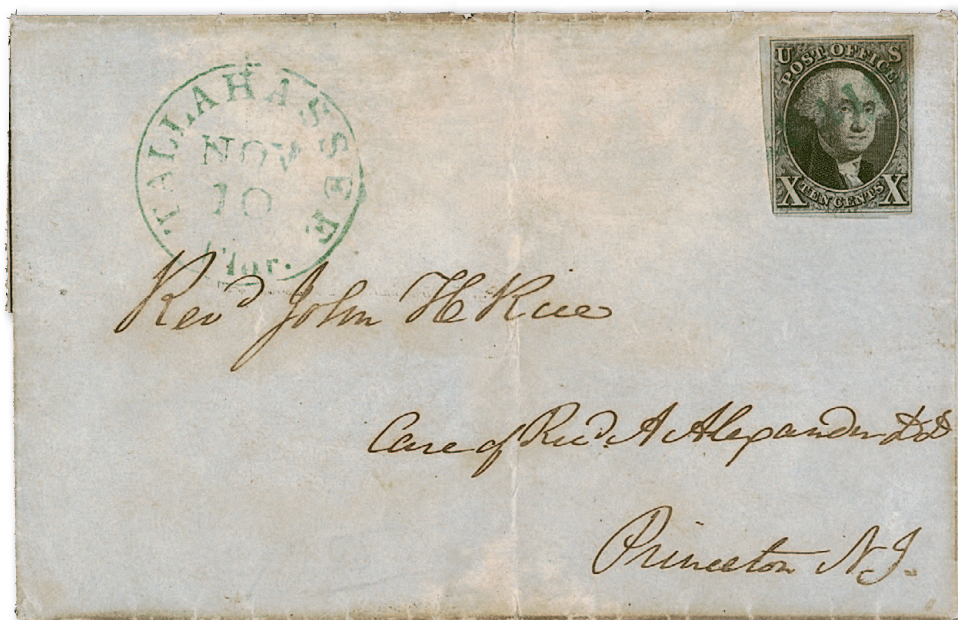 TALLAHASSEE
NOV
10
Flor.
U S
POST OFFICE
X TEN CENTS X
Revd John H Rice
Care of Revd A Alexander DD
Princeton N.J.